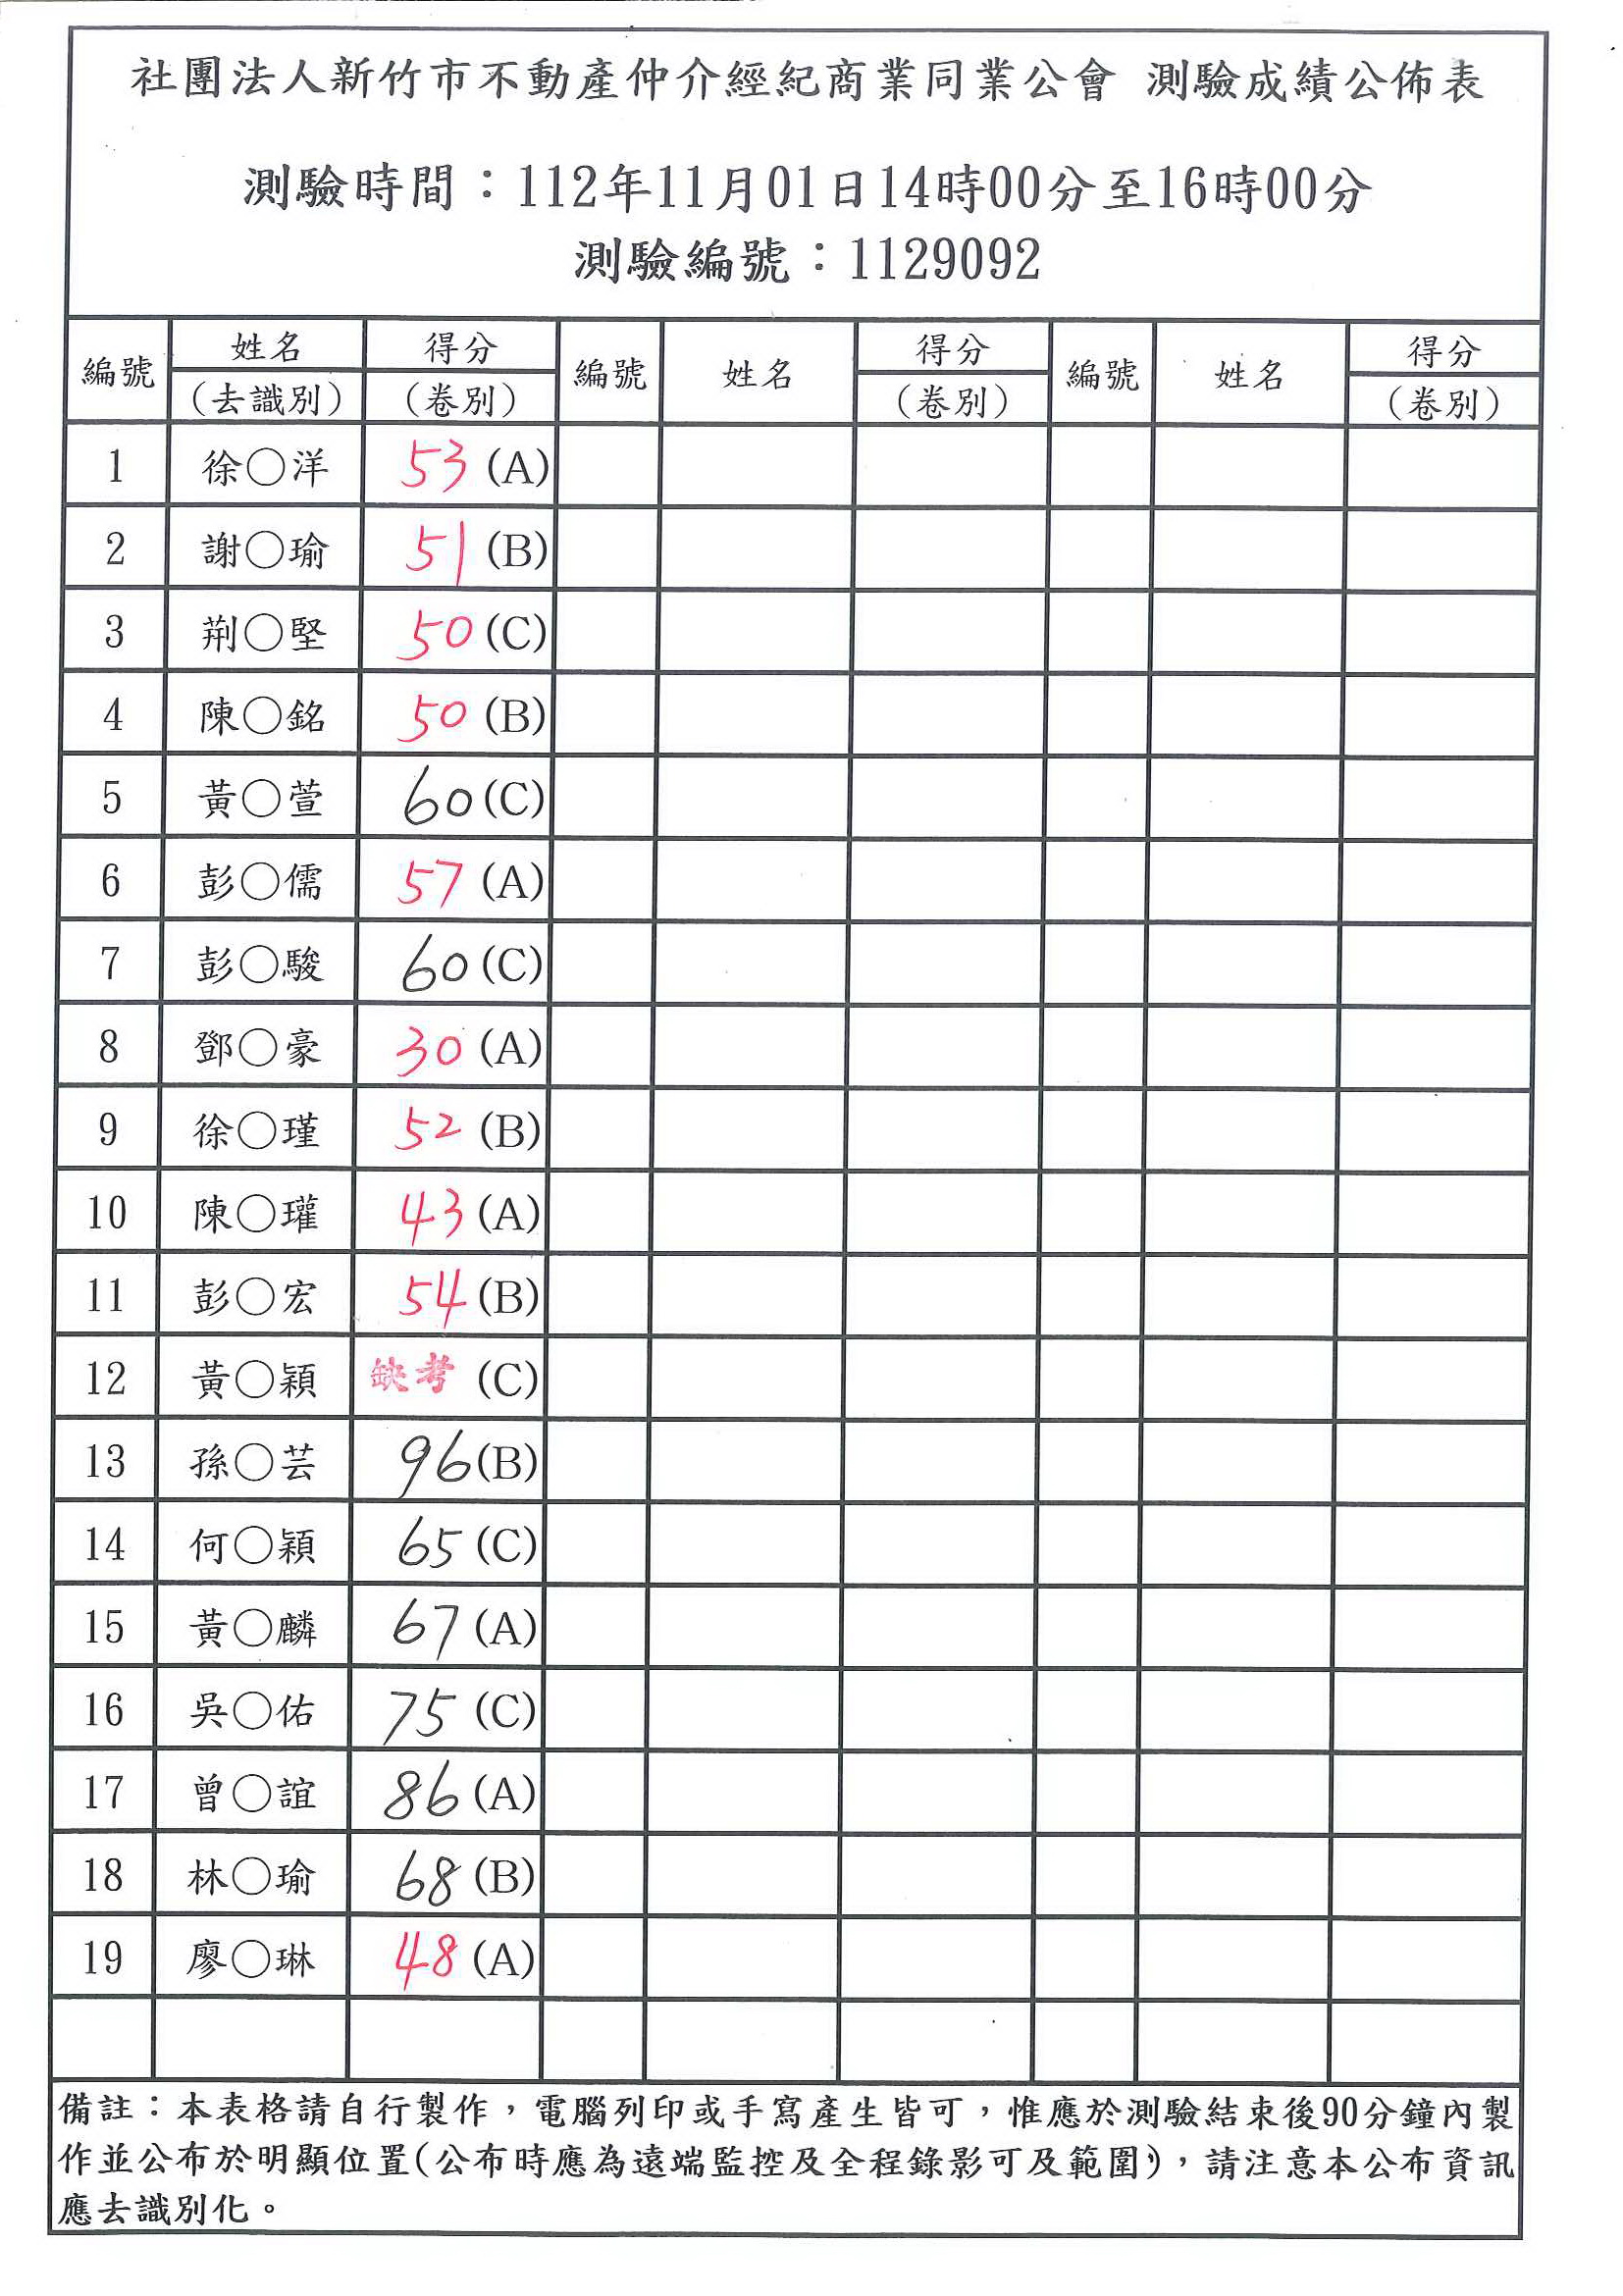 社團法人新竹市不動產仲介經紀商業同業公會 測驗成績公佈表
測驗時間：112年11月01日14時00分至16時00分
測驗編號：1129092
編號 姓名 得分 編號 姓名 得分 編號 姓名 得分
(去識別) (卷別) (卷別) (卷別)
1 徐○洋 53 (A)
2 謝○瑜 51 (B)
3 荊○堅 50 (C)
4 陳○銘 50 (B)
5 黃○萱 60 (C)
6 彭○儒 57 (A)
7 彭○駿 60 (C)
8 鄧○豪 30 (A)
9 徐○瑾 52 (B)
10 陳○瓘 43 (A)
11 彭○宏 54 (B)
12 黃○穎 缺考 (C)
13 孫○芸 96 (B)
14 何○穎 65 (C)
15 黃○麟 67 (A)
16 吳○佑 75 (C)
17 曾○誼 86 (A)
18 林○瑜 68 (B)
19 廖○琳 48 (A)
備註：本表格請自行製作，電腦列印或手寫產生皆可，惟應於測驗結束後90分鐘內製
作並公布於明顯位置(公布時應為遠端監控及全程錄影可及範圍)，請注意本公布資訊
應去識別化。